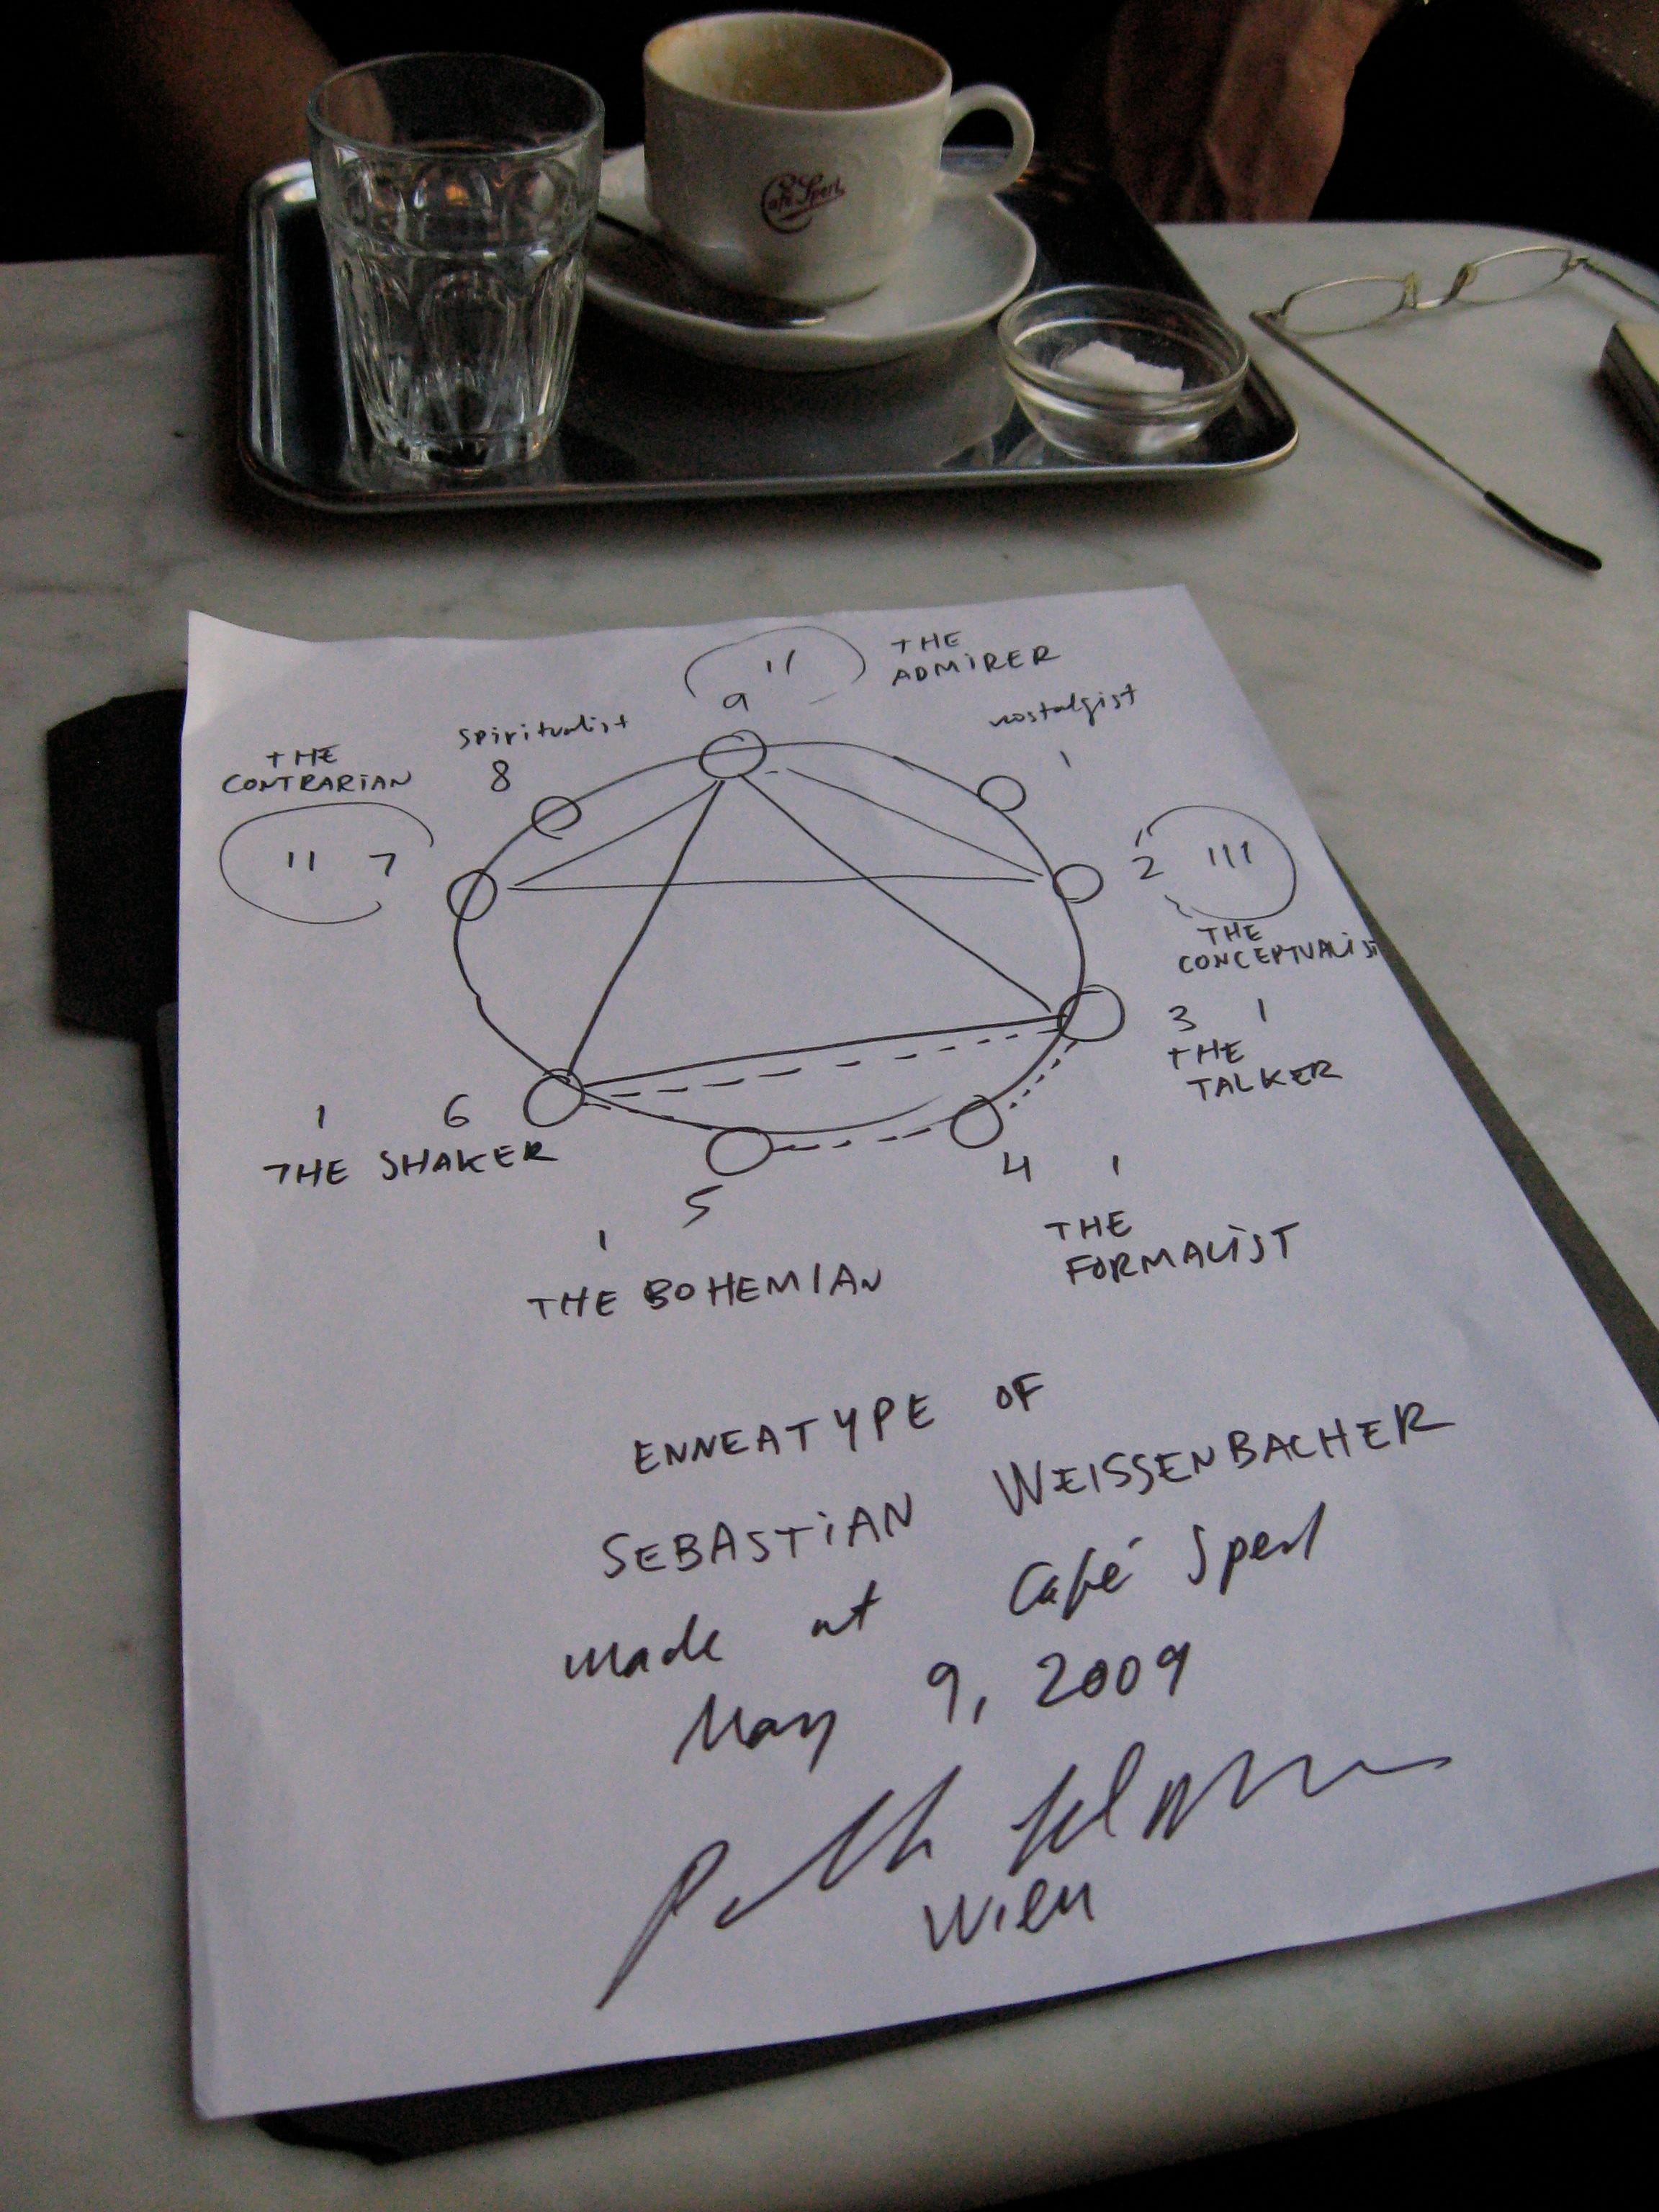 Café Sperl
THE
ADMIRER
11
9
nostalgist
1
spiritualist
8
THE
CONTRARIAN
11 7
2 111
THE
CONCEPTUALIST
3 1
THE
TALKER
4 1
THE
FORMALIST
5
1
THE BOHEMIAN
1 6
THE SHAKER
ENNEATYPE OF
SEBASTIAN WEISSENBACHER
made at Café Sperl
May 9, 2009
Wien